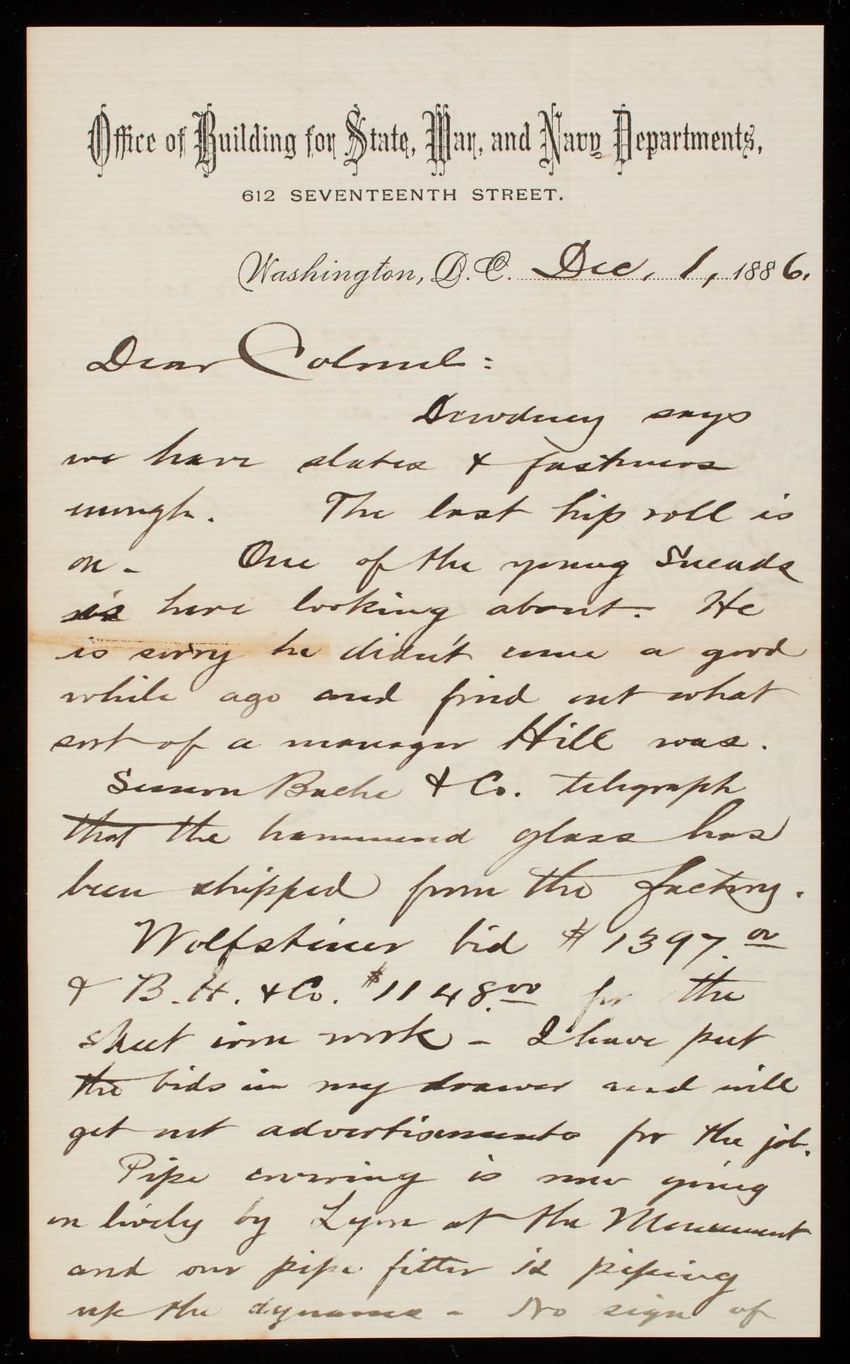 Office of Building for State, War, and Navy Departments,
612 SEVENTEENTH STREET.
Washington, D.C. Dec. 1, 1886.
Dear Colonel:
Dewdney says
we have slates & fasteners
enough. The last hip roll is
on - One of the young Sneads
is here looking about. He
is sorry he didn't come a good
while ago and find out what
sort of a manager Hill was.
Semon Bache & Co. telegraph
that the hammered glass has
been shipped from the factory.
Wolfsteiner bid $1397.00
& B. H. & Co. $1148.00 for the
sheet iron work - I have put
the bids in my drawer and will
get out advertisements for the job.
Pipe covering is now going
on lively by Lyon at the Monument
and our pipe fitter is piping
up the dynamo - No sign of